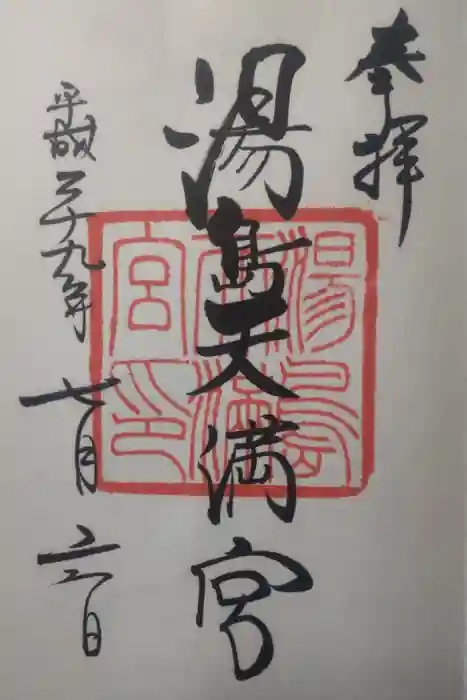 奉拝
湯島天満宮
平成二十九年七月六日
湯島
天満
宮印